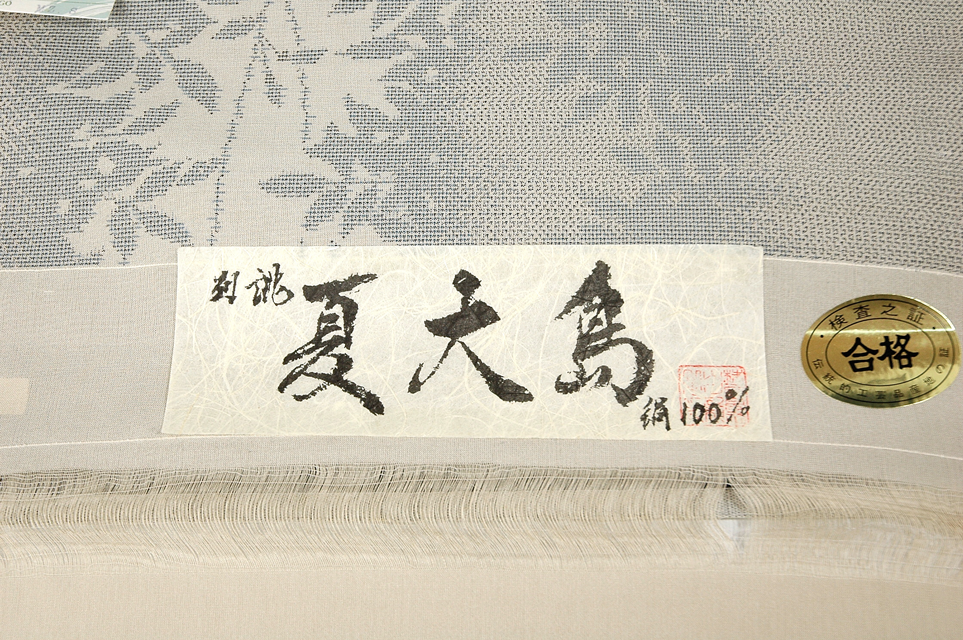 別誂
夏天島
絹100%
検査之証
合格
伝統的工芸品産地の証